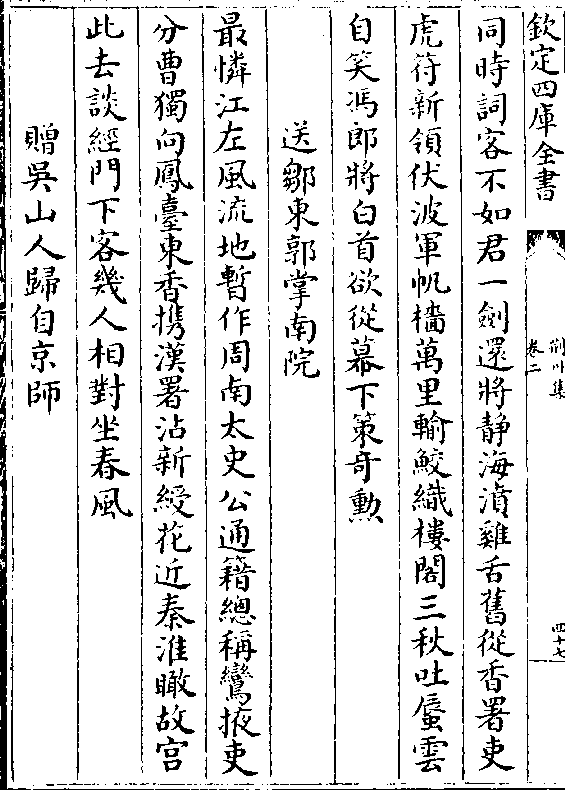 欽定四庫全書
荆川集
卷二
四十七
同時詞客不如君一劍還將静海濆雞舌舊從香署吏
虎符新領伏波軍帆檣萬里輸鮫織樓閣三秋吐蜃雲
自笑馮郎將白首欲從幕下策奇勲
送鄒東郭掌南院
最憐江左風流地暫作周南太史公通籍總稱鸞掖吏
分曹獨向鳳臺東香携漢署沾新綬花近秦淮瞰故宫
此去談經門下客幾人相對坐春風
贈吳山人歸自京師